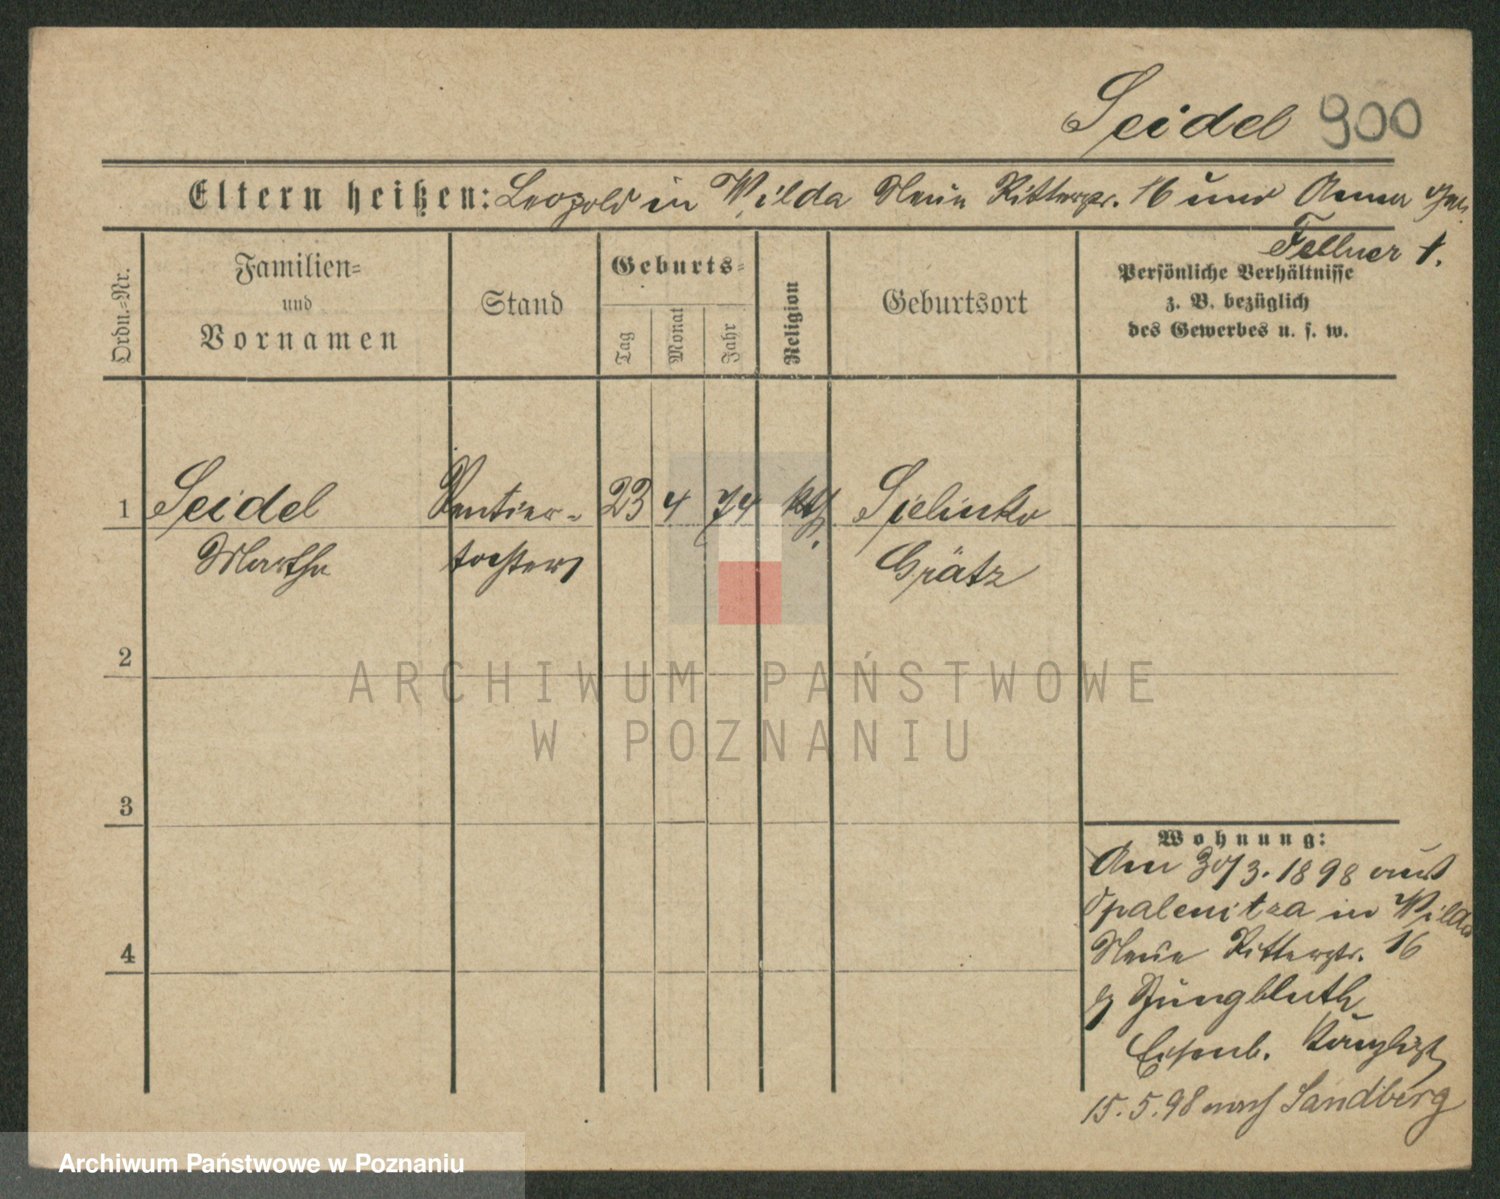 Seidel 900
Eltern heißen: Leopold in Wilda Neue Ritterstr. 16 und Anna geb.
Fellner †.
Ordn.-Nr.
Familien-
und
Vornamen
Stand
Geburts-
Tag
Monat
Jahr
Religion
Geburtsort
Persönliche Verhältnisse
z. B. bezüglich
des Gewerbes u. s. w.
1 Seidel Rentier- 23 4 74 kth. Sielinko
Martha tochter Grätz
2
ARCHIWUM PAŃSTWOWE
W POZNANIU
3
Wohnung:
Am 30/3. 1898 aus
Opalenitza in Wilda
4
Neue Ritterstr. 16
b/ Jungbluth
Eisenb. Kanzlist
15.5.98 nach Sandberg
Archiwum Państwowe w Poznaniu